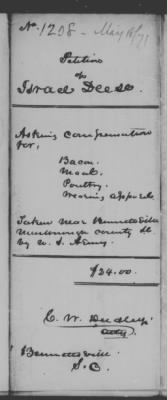 No. 1208 - May 18/71
Petition
of
Israel Deese
Asking Compensation
for,
Bacon.
Meal.
Poultry.
Wearing Apparel
Taken near Bennettsville
Marlborough County SC
by U. S. Army.
$24.00.
C. W. Dudley.
Atty.
Bennettsville
S. C.